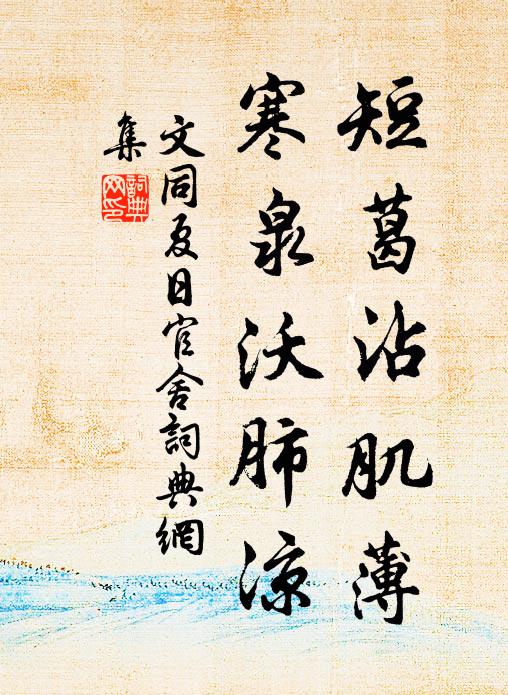 短葛沾肌薄
寒泉沃肺涼
文同夏日官舍詞典網
集
詞典
网印